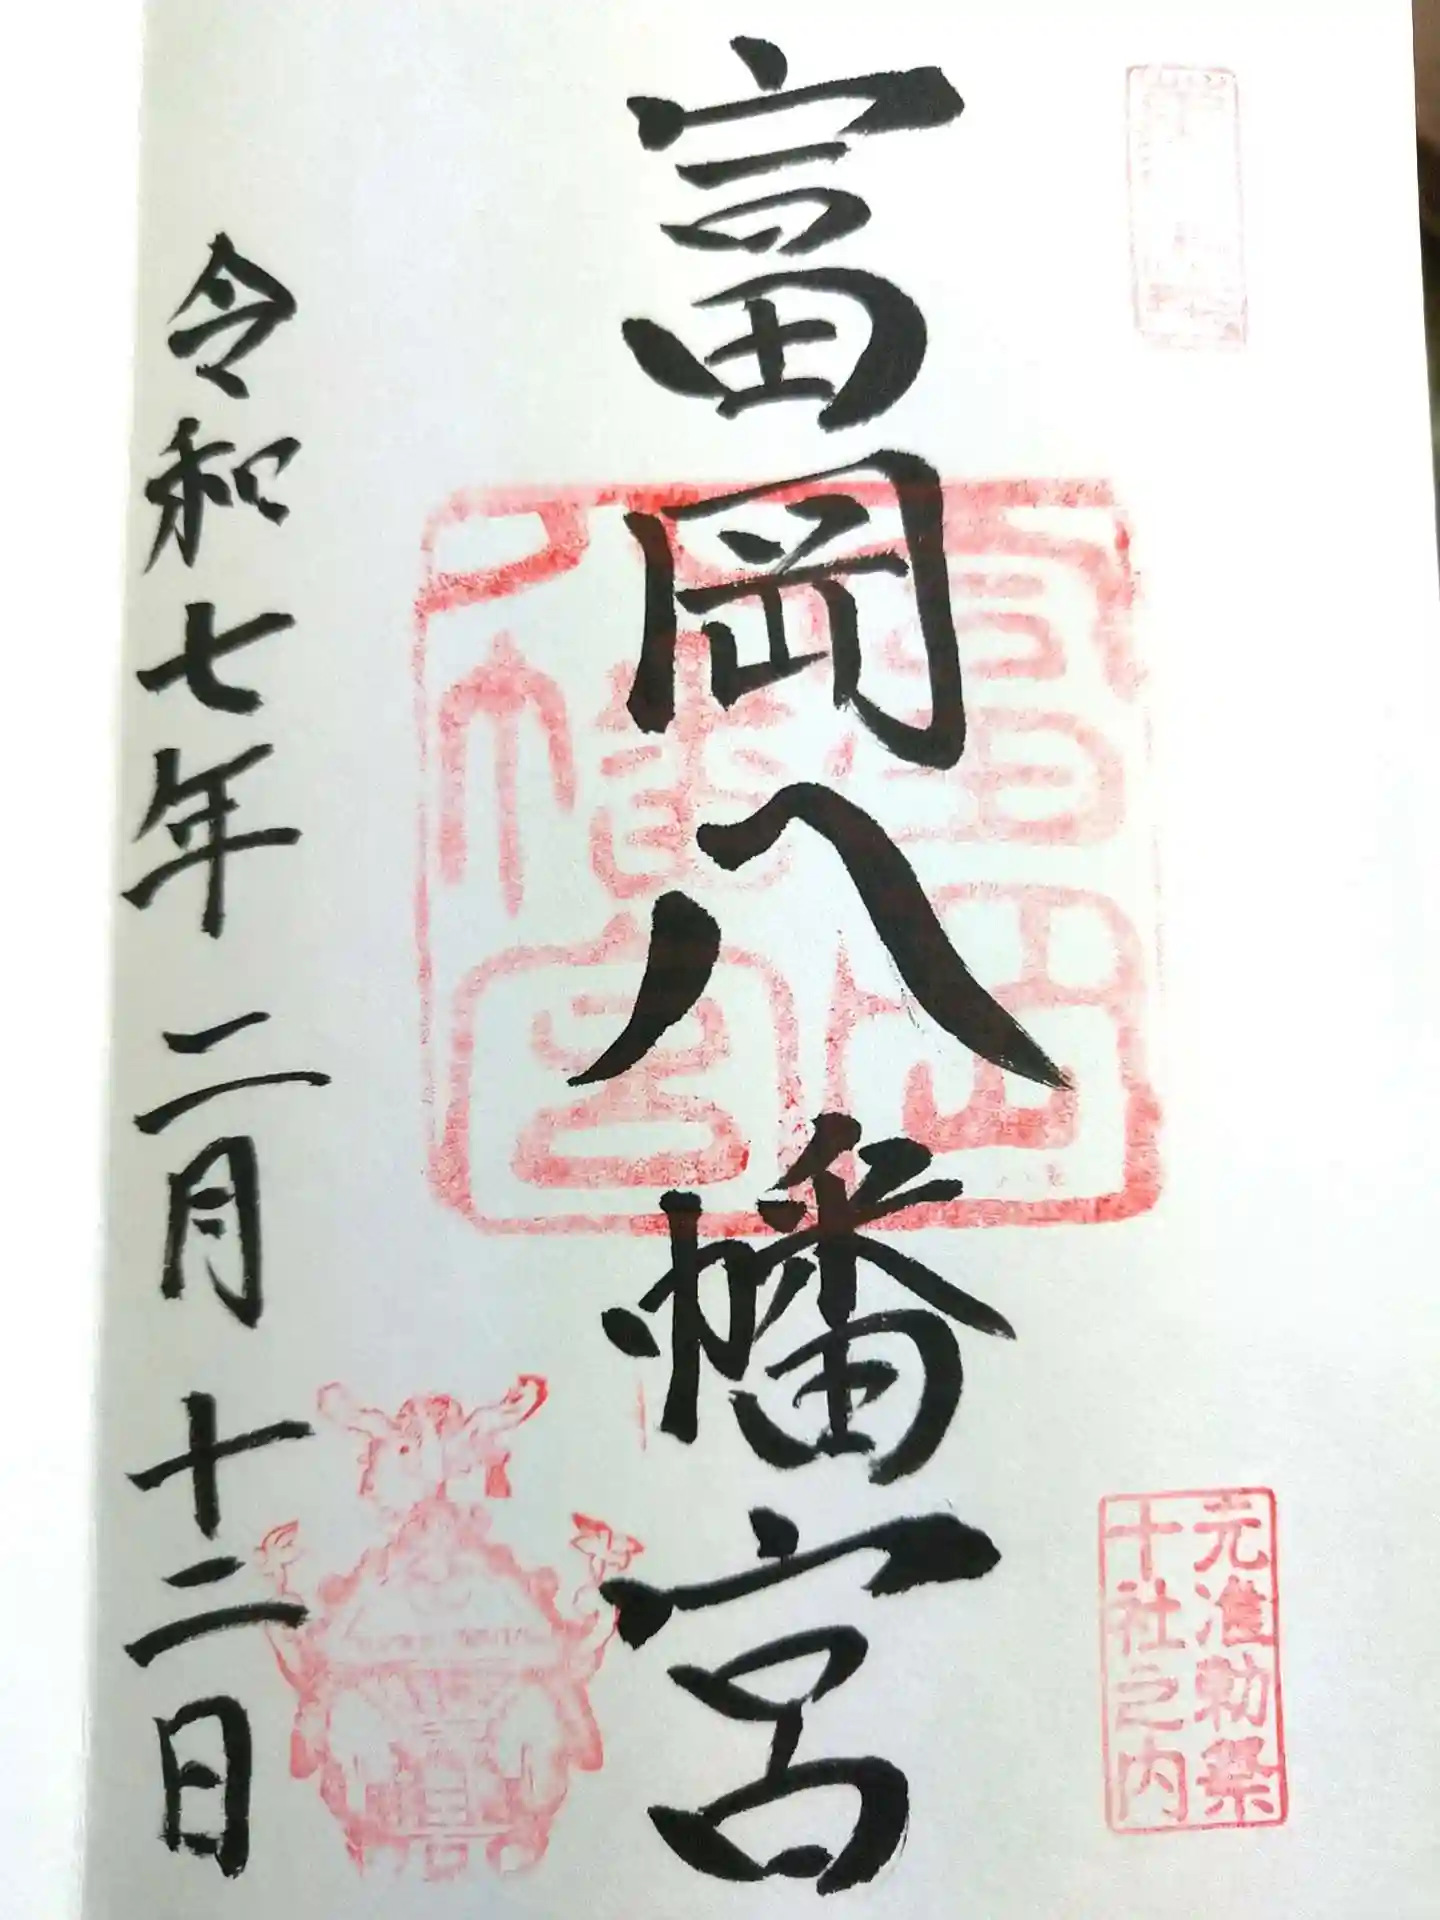 富岡八幡宮
元准勅祭
十社之内
富岡八幡宮
令和七年二月十二日